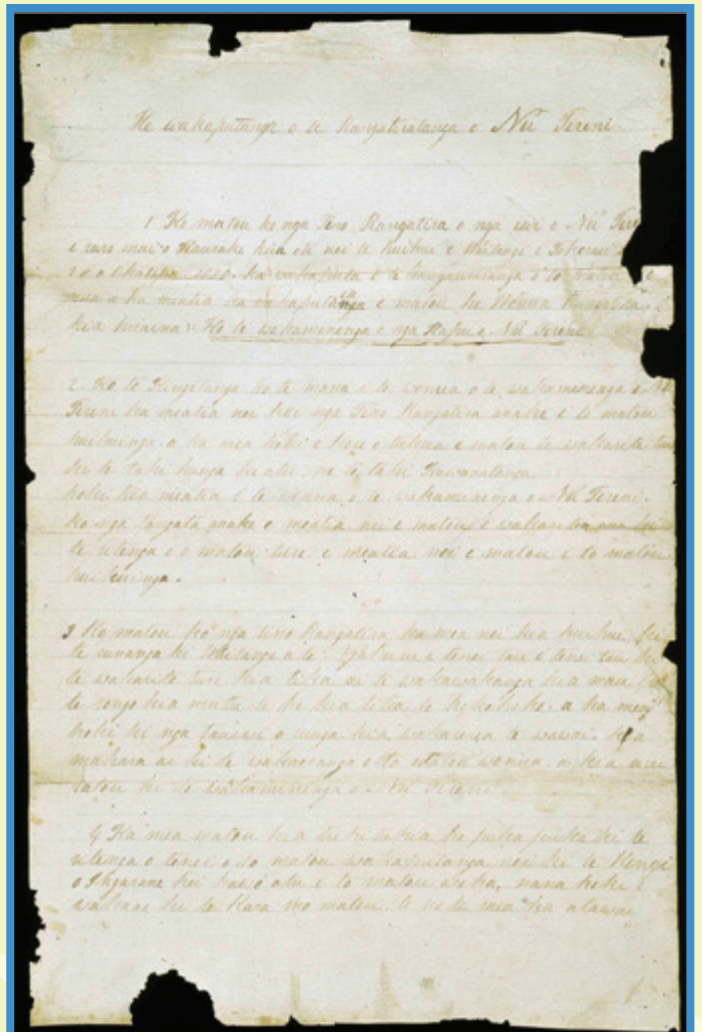 He wakaputanga o te Rangatiratanga o Nu Tireni.
1 Ko matou ko nga Tino Rangatira o nga iwi o Nu Tire
i raro mai o Hauraki kua oti nei te huihui i Waitangi i Tokerau
ka wakaputa i te Rangatiratanga o to matou
a ka meatia ka wakaputaia e matou he Wenua Rangatira
kia huaina "Ko te wakamenenga o nga Hapu o Nu Tireni
2. Ko te Kingitanga ko te mana i te wenua o te wakamenenga o Nu
Tireni ka meatia nei kei nga Tino Rangatira anake i to matou
huihuinga. a ka mea hoki e kore e tukua e matou te wakarite ture
ki te tahi hunga ke atu, me te tahi Kawanatanga
hoki kia meatia i te wenua o te wakamenenga o Nu Tireni.
ko nga tangata anake e meatia nei e matou e wakarite ana ki
te ritenga o o matou ture e meatia nei e matou i to matou
huihuinga.
3 Ko matou ko nga tino Rangatira ka mea nei kia huihui ki
te runanga ki Waitangi a te Ngahuru i tenei tau i tenei tau ki
te wakarite ture kia tika ai te wakawakanga kia mau
te rongo kia mutu te he kia tika te hokohoko. a ka mea
hoki ki nga tauiwi o runga kia wakarerea te wawai. kia
mahara ai ki te wakaoranga o to matou wenua. a kia uru
ratou ki te wakaminenga o Nu Tireni.
4 Ka mea matou kia tuhituhia he pukapuka ki te
ritenga o tenei o to matou wakaputanga nei ki te Kingi
o Ingarani hei kawe atu i to matou aroha, nana hoki i
wakaae ki te Kara mo matou. a no te mea ka atawai